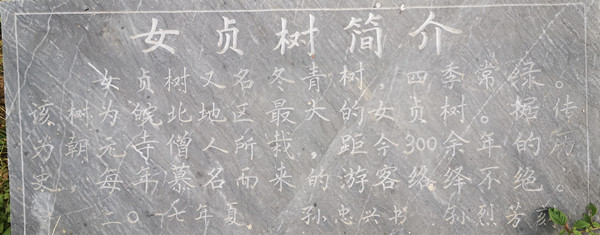 女贞树简介
女贞树又名冬青树，四季常绿。
该树为皖北地区最大的女贞树。据传
为朝元寺僧人所栽，距今300余年的历
史，每年慕名而来的游客络绎不绝。
二〇一七年夏 孙忠洪书 孙烈芳刻